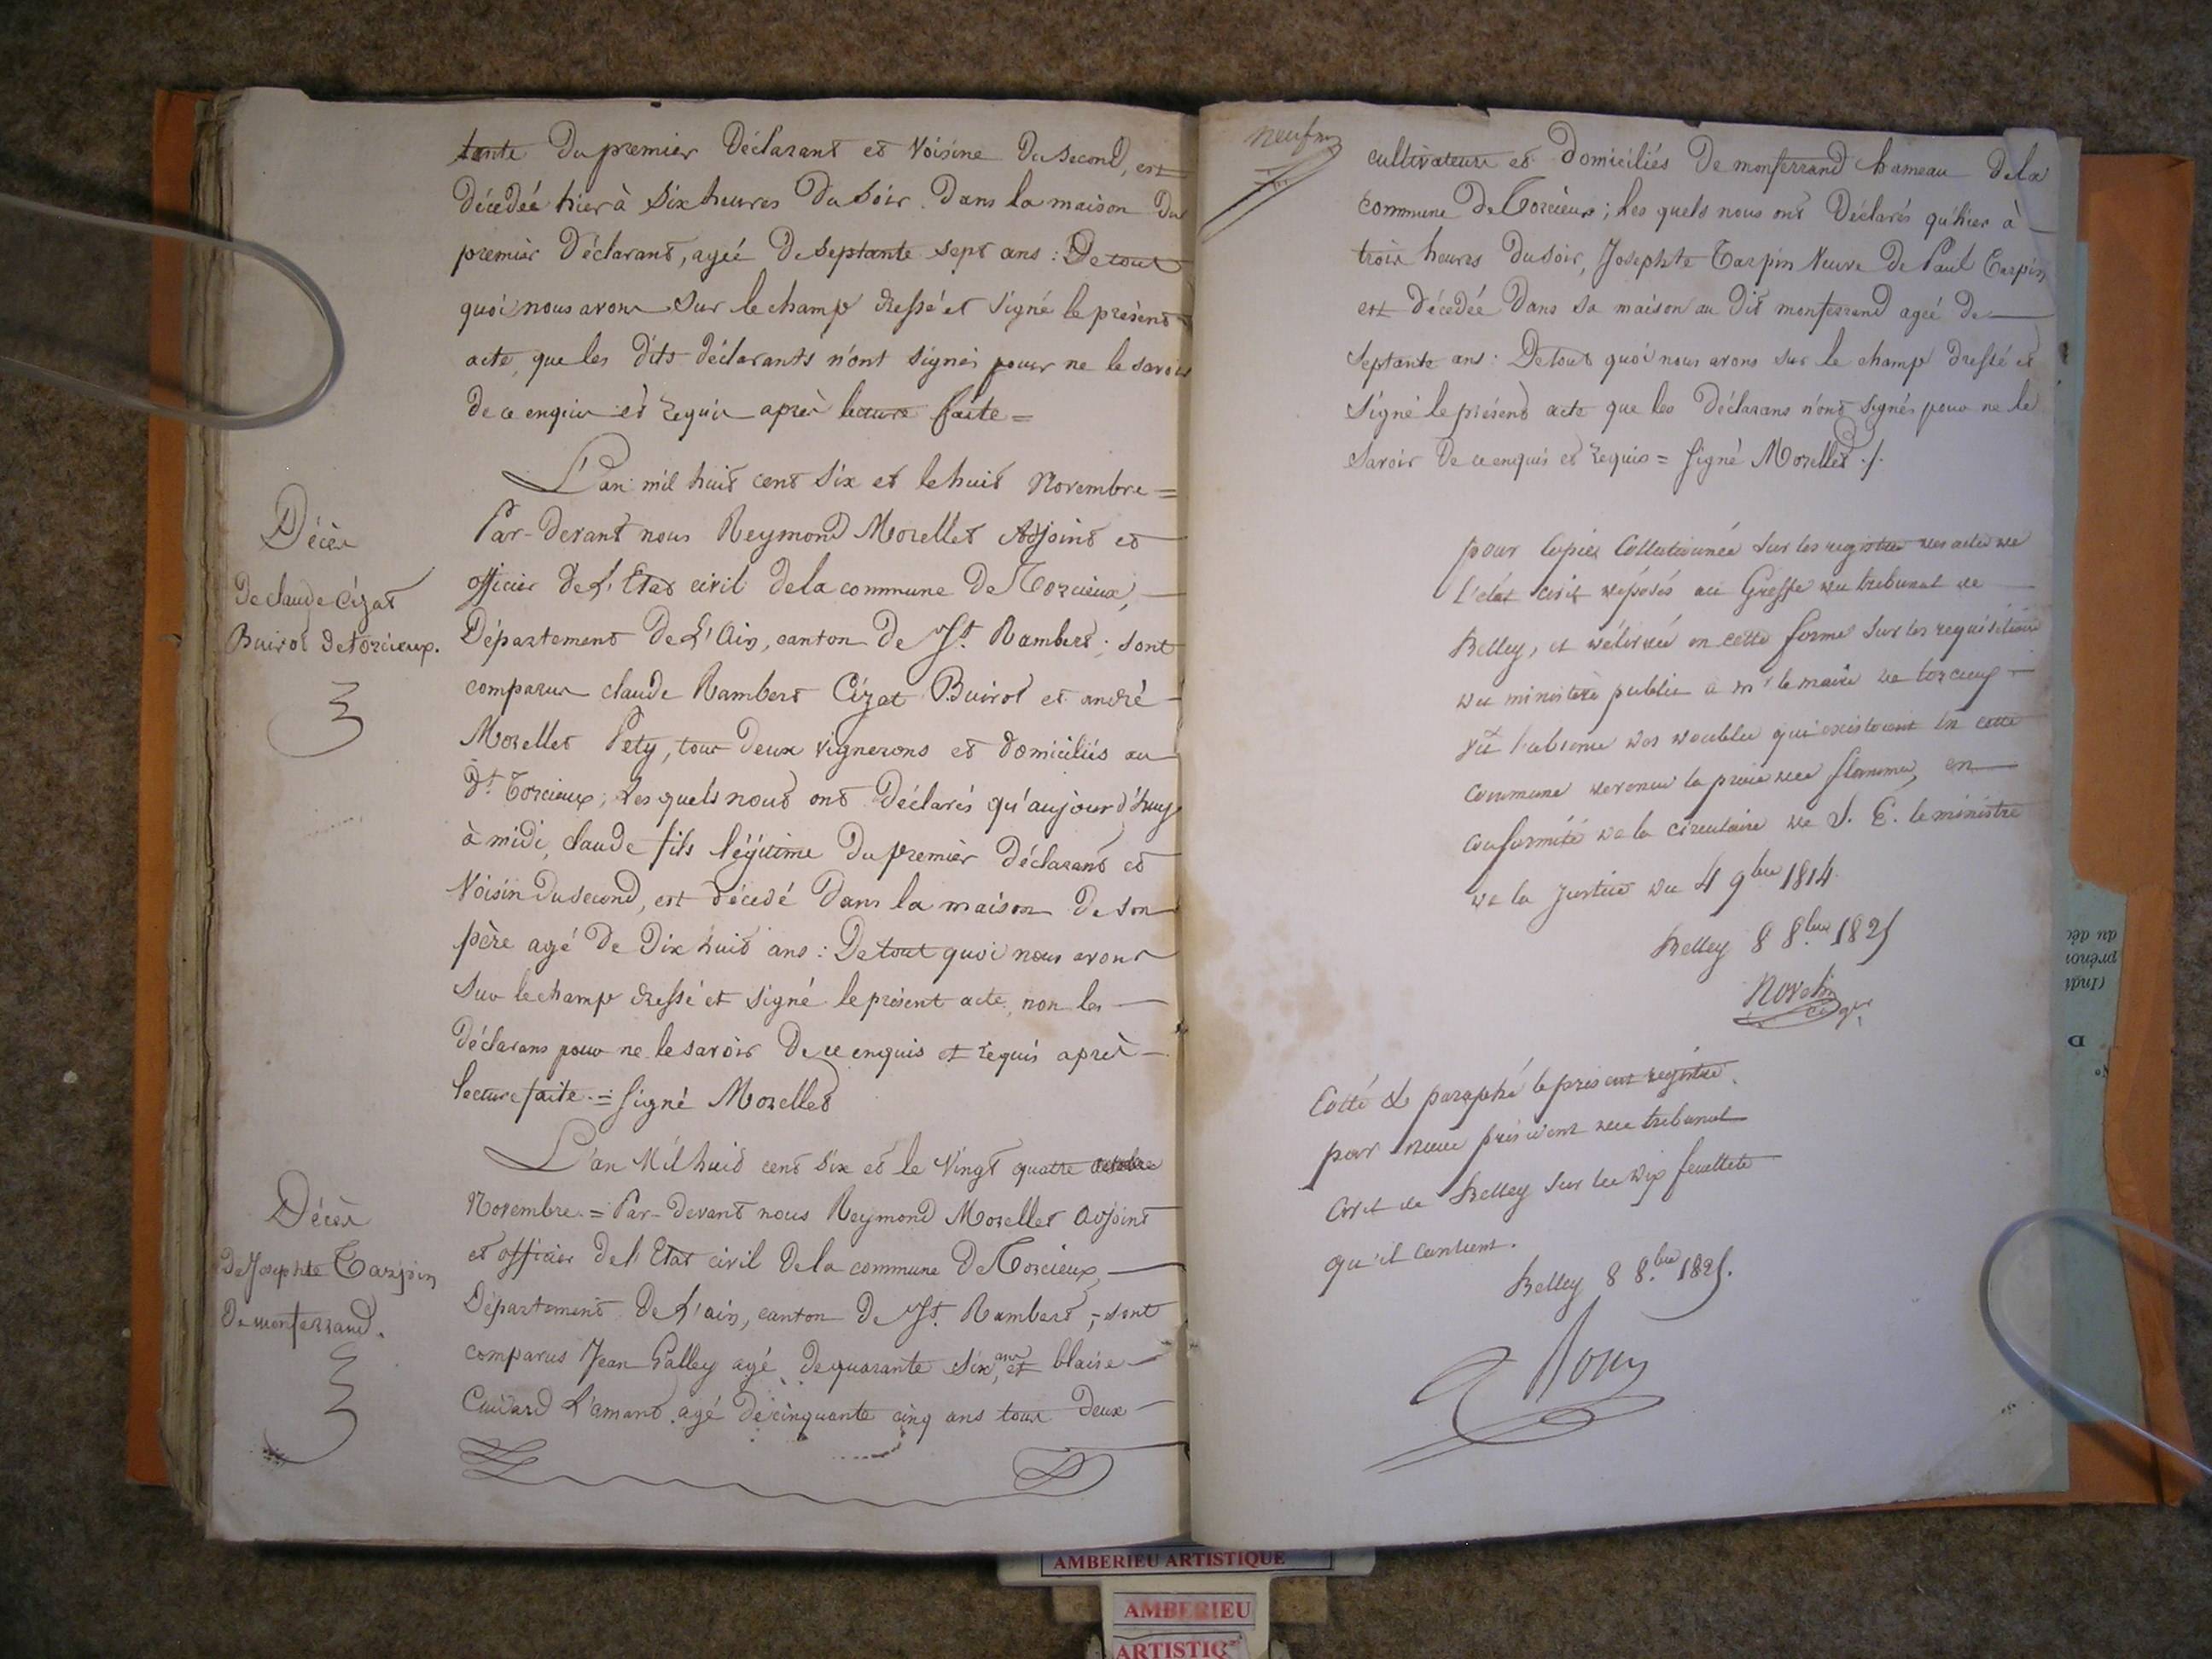 tante du premier Déclarant et Voisine du second, est
décédée hier à six heures du soir dans la maison du
premier Déclarant, agée de septante sept ans : De tout
quoi nous avons sur le champ dressé et signé le présent
acte, que les dits déclarants n'ont signés pour ne le savoir
de ce enquis et requis après lecture faite =
Décès
de claude Cizat
Buirot de torcieux.
L'an mil huit cent six et le huit Novembre =
Par-devant nous Reymond Morellet Adjoint et
officier de L'Etat civil de la commune de Torcieux,
Département de L'Ain, canton de St. Rambert ; sont
comparus claude Rambert Cizat Buirot et andré
Morellet Pety, tous deux vignerons et domiciliés au
dt. Torcieux ; Les quels nous ont déclarés qu'aujourd'huy
à midi, claude fils légitime du premier déclarant et
Voisin du second, est décédé dans la maison de son
père agé de dix huit ans : De tout quoi nous avons
sur le champ dressé et signé le présent acte, non les
déclarans pour ne le savoir de ce enquis et requis après
lecture faite. = signé Morellet
Décès
de Josephte Tarpin
de monferrand.
L'an Mil huit cent six et le Vingt quatre
Novembre. = Par-devant nous Reymond Morellet adjoint
et officier de l'Etat civil de la commune de Torcieux,
Département de L'ain, canton de St. Rambert ; sont
comparus Jean Galley agé de quarante six ans, et blaise
Cuidard L'amant agé de cinquante cinq ans tous deux
neuf
cultivateurs et domiciliés de monferrand hameau de la
commune de Torcieux ; Les quels nous ont déclarés qu'hier à
trois heures du soir, Josephte Tarpin Veuve de Paul Tarpin
est décédée dans sa maison au dit monferrand agée de
septante ans : De tout quoi nous avons sur le champ dressé et
signé le présent acte que les déclarans n'ont signés pour ne le
savoir de ce enquis et requis = signé Morellet ./.
pour copies Collationnée sur les registres des actes de
l'état civil déposés au Greffe du tribunal de
Belley, et délivrée en cette forme sur les requisitions
du ministère public à mr le maire de torcieux
vu l'absence des doubles qui existoient en cette
commune devenus la proie des flammes, en
conformité de la circulaire de S. E. le ministre
de la Justice du 4 9bre 1814.
Belley 8 8.bre 1825
Cotté & paraphé le présent registre
par nous président du tribunal
Civil de Belley sur les dix feuillets
qu'il contient.
Belley 8 8.bre 1825.
AMBERIEU ARTISTIQUE
AMBERIEU
ARTISTIQ